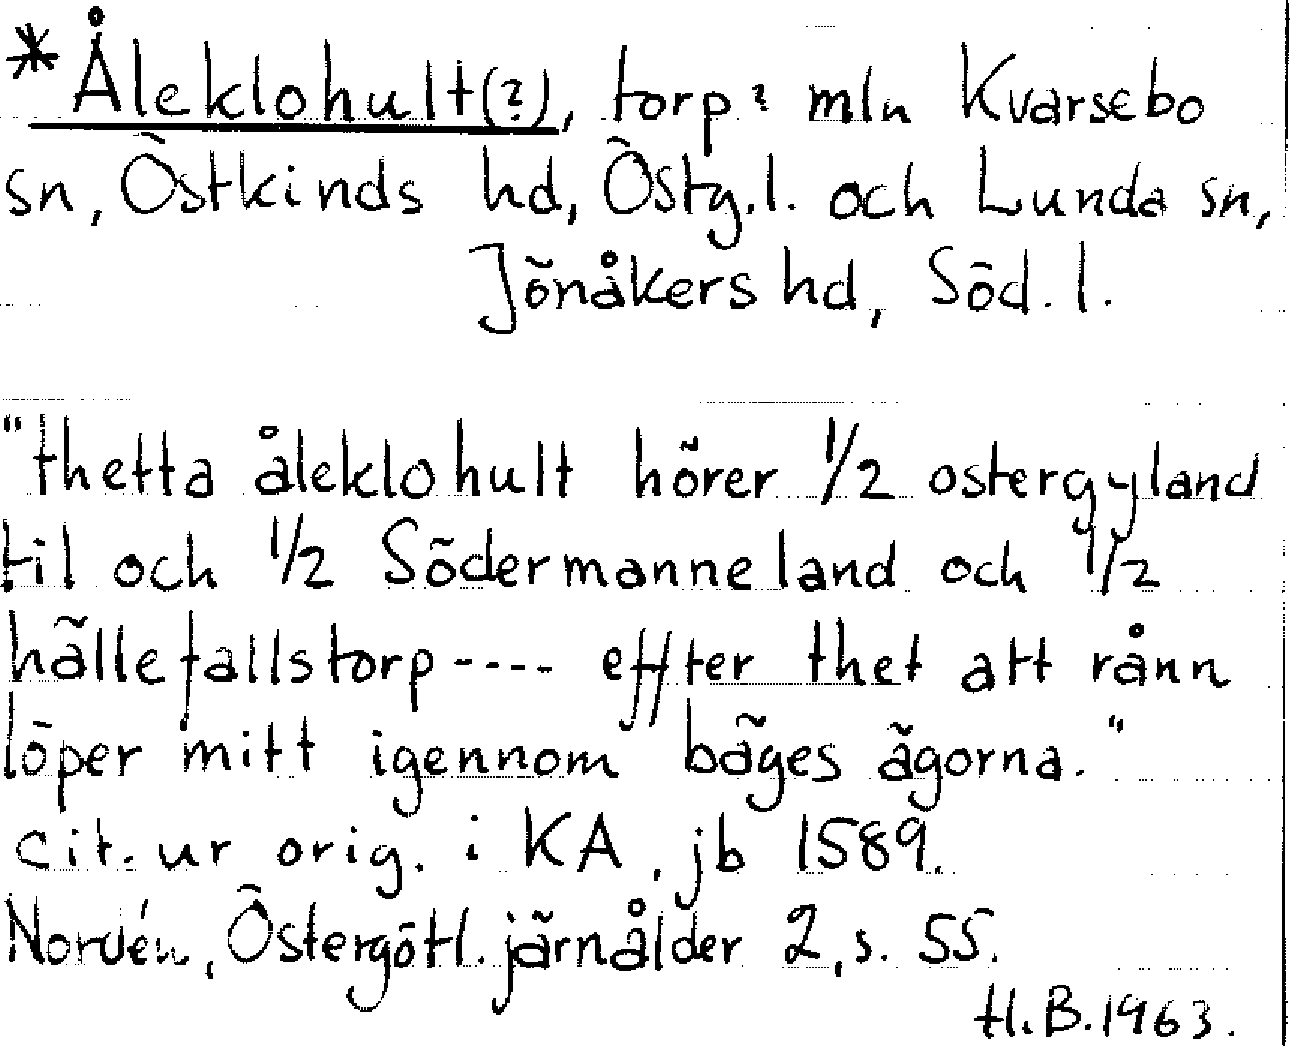 *Åleklohult(?), torp? mln Kvarsebo
sn, Östkinds hd, Östg.l. och Lunda sn,
Jönåkers hd, Söd. l.
"thetta åleklohult hörer 1/2 ostergyland
til och 1/2 Södermanneland och 1/2
hällefallstorp---- effter thet att rånn
löper mitt igennom bäges ägorna."
Cit. ur orig. i KA, jb 1589.
Nordén, Östergötl. järnålder 2, s. 55.
H.B. 1963.